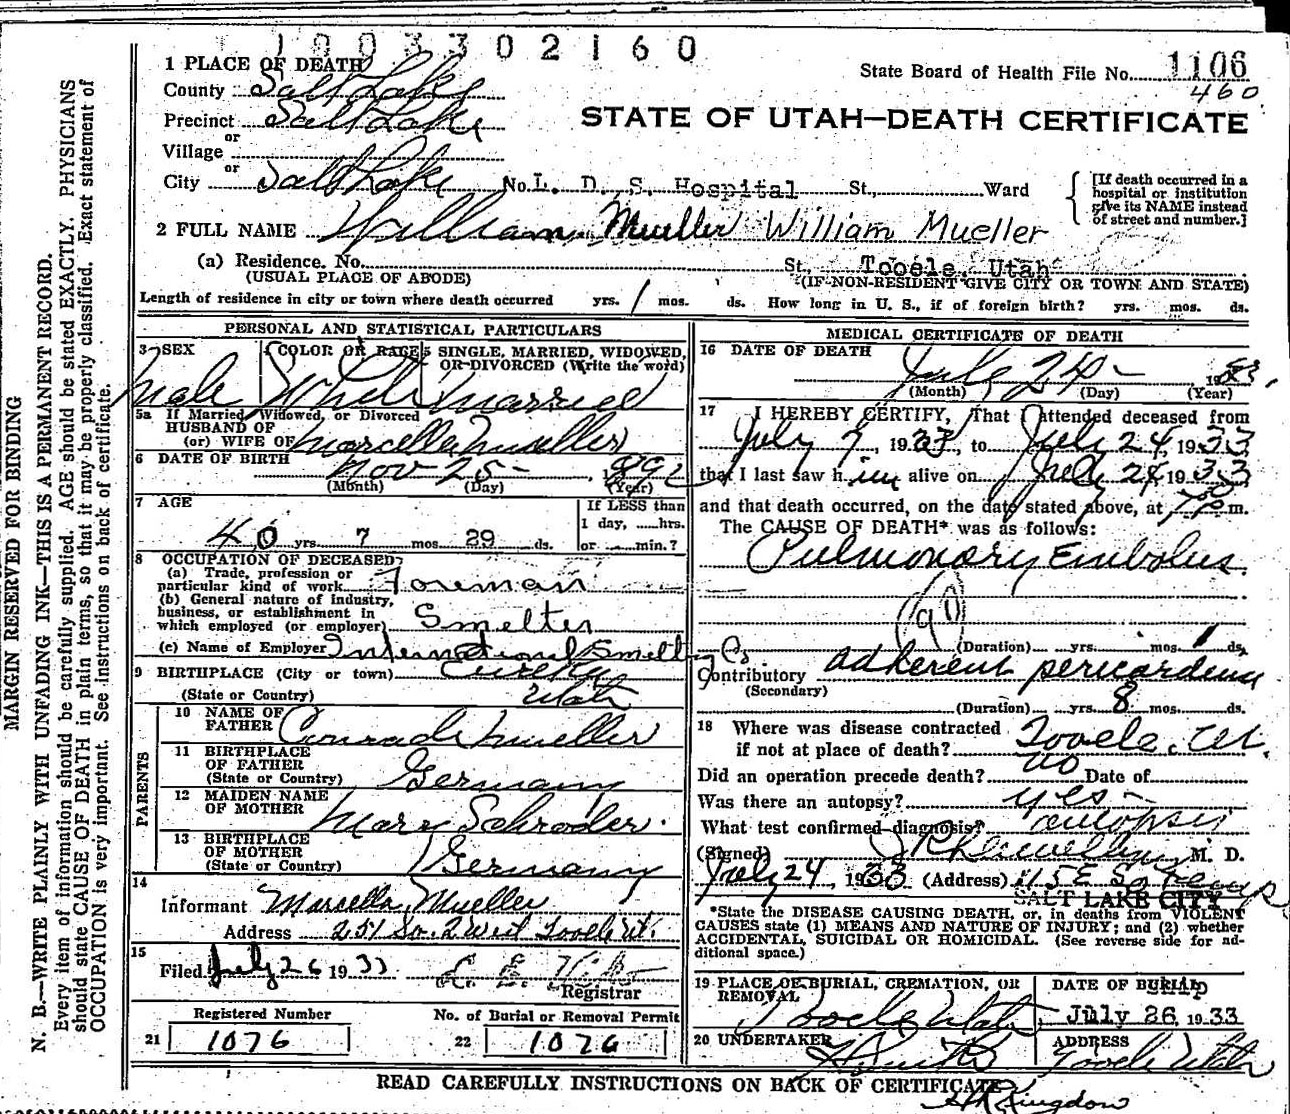 1003302160
1 PLACE OF DEATH
State Board of Health File No. 1106
460
County Salt Lake
STATE OF UTAH—DEATH CERTIFICATE
Precinct Salt Lake
or
Village
or
City Salt Lake No. L. D. S. Hospital St., Ward
[If death occurred in a hospital or institution give its NAME instead of street and number.]
2 FULL NAME William Mueller William Mueller
(a) Residence. No. St., Tooele, Utah
(USUAL PLACE OF ABODE) (IF NON-RESIDENT GIVE CITY OR TOWN AND STATE)
Length of residence in city or town where death occurred yrs. 1 mos. ds. How long in U. S., if of foreign birth? yrs. mos. ds.
PERSONAL AND STATISTICAL PARTICULARS
3 SEX 4 COLOR OR RACE 5 SINGLE, MARRIED, WIDOWED, OR DIVORCED (Write the word)
Male White Married
5a If Married, Widowed, or Divorced
HUSBAND OF
(or) WIFE OF Marcella Mueller
6 DATE OF BIRTH Nov 25 - 1892
(Month) (Day) (Year)
7 AGE If LESS than
1 day, hrs.
40 yrs. 7 mos. 29 ds. or min.?
8 OCCUPATION OF DECEASED
(a) Trade, profession or
particular kind of work Foreman
(b) General nature of industry,
business, or establishment in
which employed (or employer) Smelter
(c) Name of Employer International Smelting Co
9 BIRTHPLACE (City or town) Eureka
(State or Country) Utah
PARENTS
10 NAME OF
FATHER Conrad Mueller
11 BIRTHPLACE
OF FATHER
(State or Country) Germany
12 MAIDEN NAME
OF MOTHER Mary Schroder
13 BIRTHPLACE
OF MOTHER
(State or Country) Germany
14
Informant Marcella Mueller
Address 251 So. 2 West Tooele Ut.
15
Filed July 26 1933
Registrar
Registered Number No. of Burial or Removal Permit
21 1076 22 1076
MEDICAL CERTIFICATE OF DEATH
16 DATE OF DEATH
July 24 - 1933.
(Month) (Day) (Year)
17 I HEREBY CERTIFY, That I attended deceased from
July 7, 1933, to July 24, 1933
that I last saw him alive on July 24 1933
and that death occurred, on the date stated above, at m.
The CAUSE OF DEATH* was as follows:
Pulmonary Embolus.
(Duration) yrs. mos. 1 ds.
Contributory adherent pericardium
(Secondary)
(Duration) yrs. 8 mos. ds.
18 Where was disease contracted
if not at place of death? Tooele, Ut.
Did an operation precede death? no Date of
Was there an autopsy? yes -
What test confirmed diagnosis? autopsy
(Signed) M. D.
July 24, 1933 (Address) 115 E So Temp
SALT LAKE CITY
*State the DISEASE CAUSING DEATH, or, in deaths from VIOLENT
CAUSES state (1) MEANS AND NATURE OF INJURY; and (2) whether
ACCIDENTAL, SUICIDAL OR HOMICIDAL. (See reverse side for ad-
ditional space.)
19 PLACE OF BURIAL, CREMATION, OR
REMOVAL Tooele Utah
DATE OF BURIAL
July 26 1933
20 UNDERTAKER
ADDRESS
Tooele Utah
READ CAREFULLY INSTRUCTIONS ON BACK OF CERTIFICATE
MARGIN RESERVED FOR BINDING
N. B.—WRITE PLAINLY WITH UNFADING INK—THIS IS A PERMANENT RECORD.
Every item of information should be carefully supplied. AGE should be stated EXACTLY. PHYSICIANS
should state CAUSE OF DEATH in plain terms, so that it may be properly classified. Exact statement of
OCCUPATION is very important. See instructions on back of certificate.